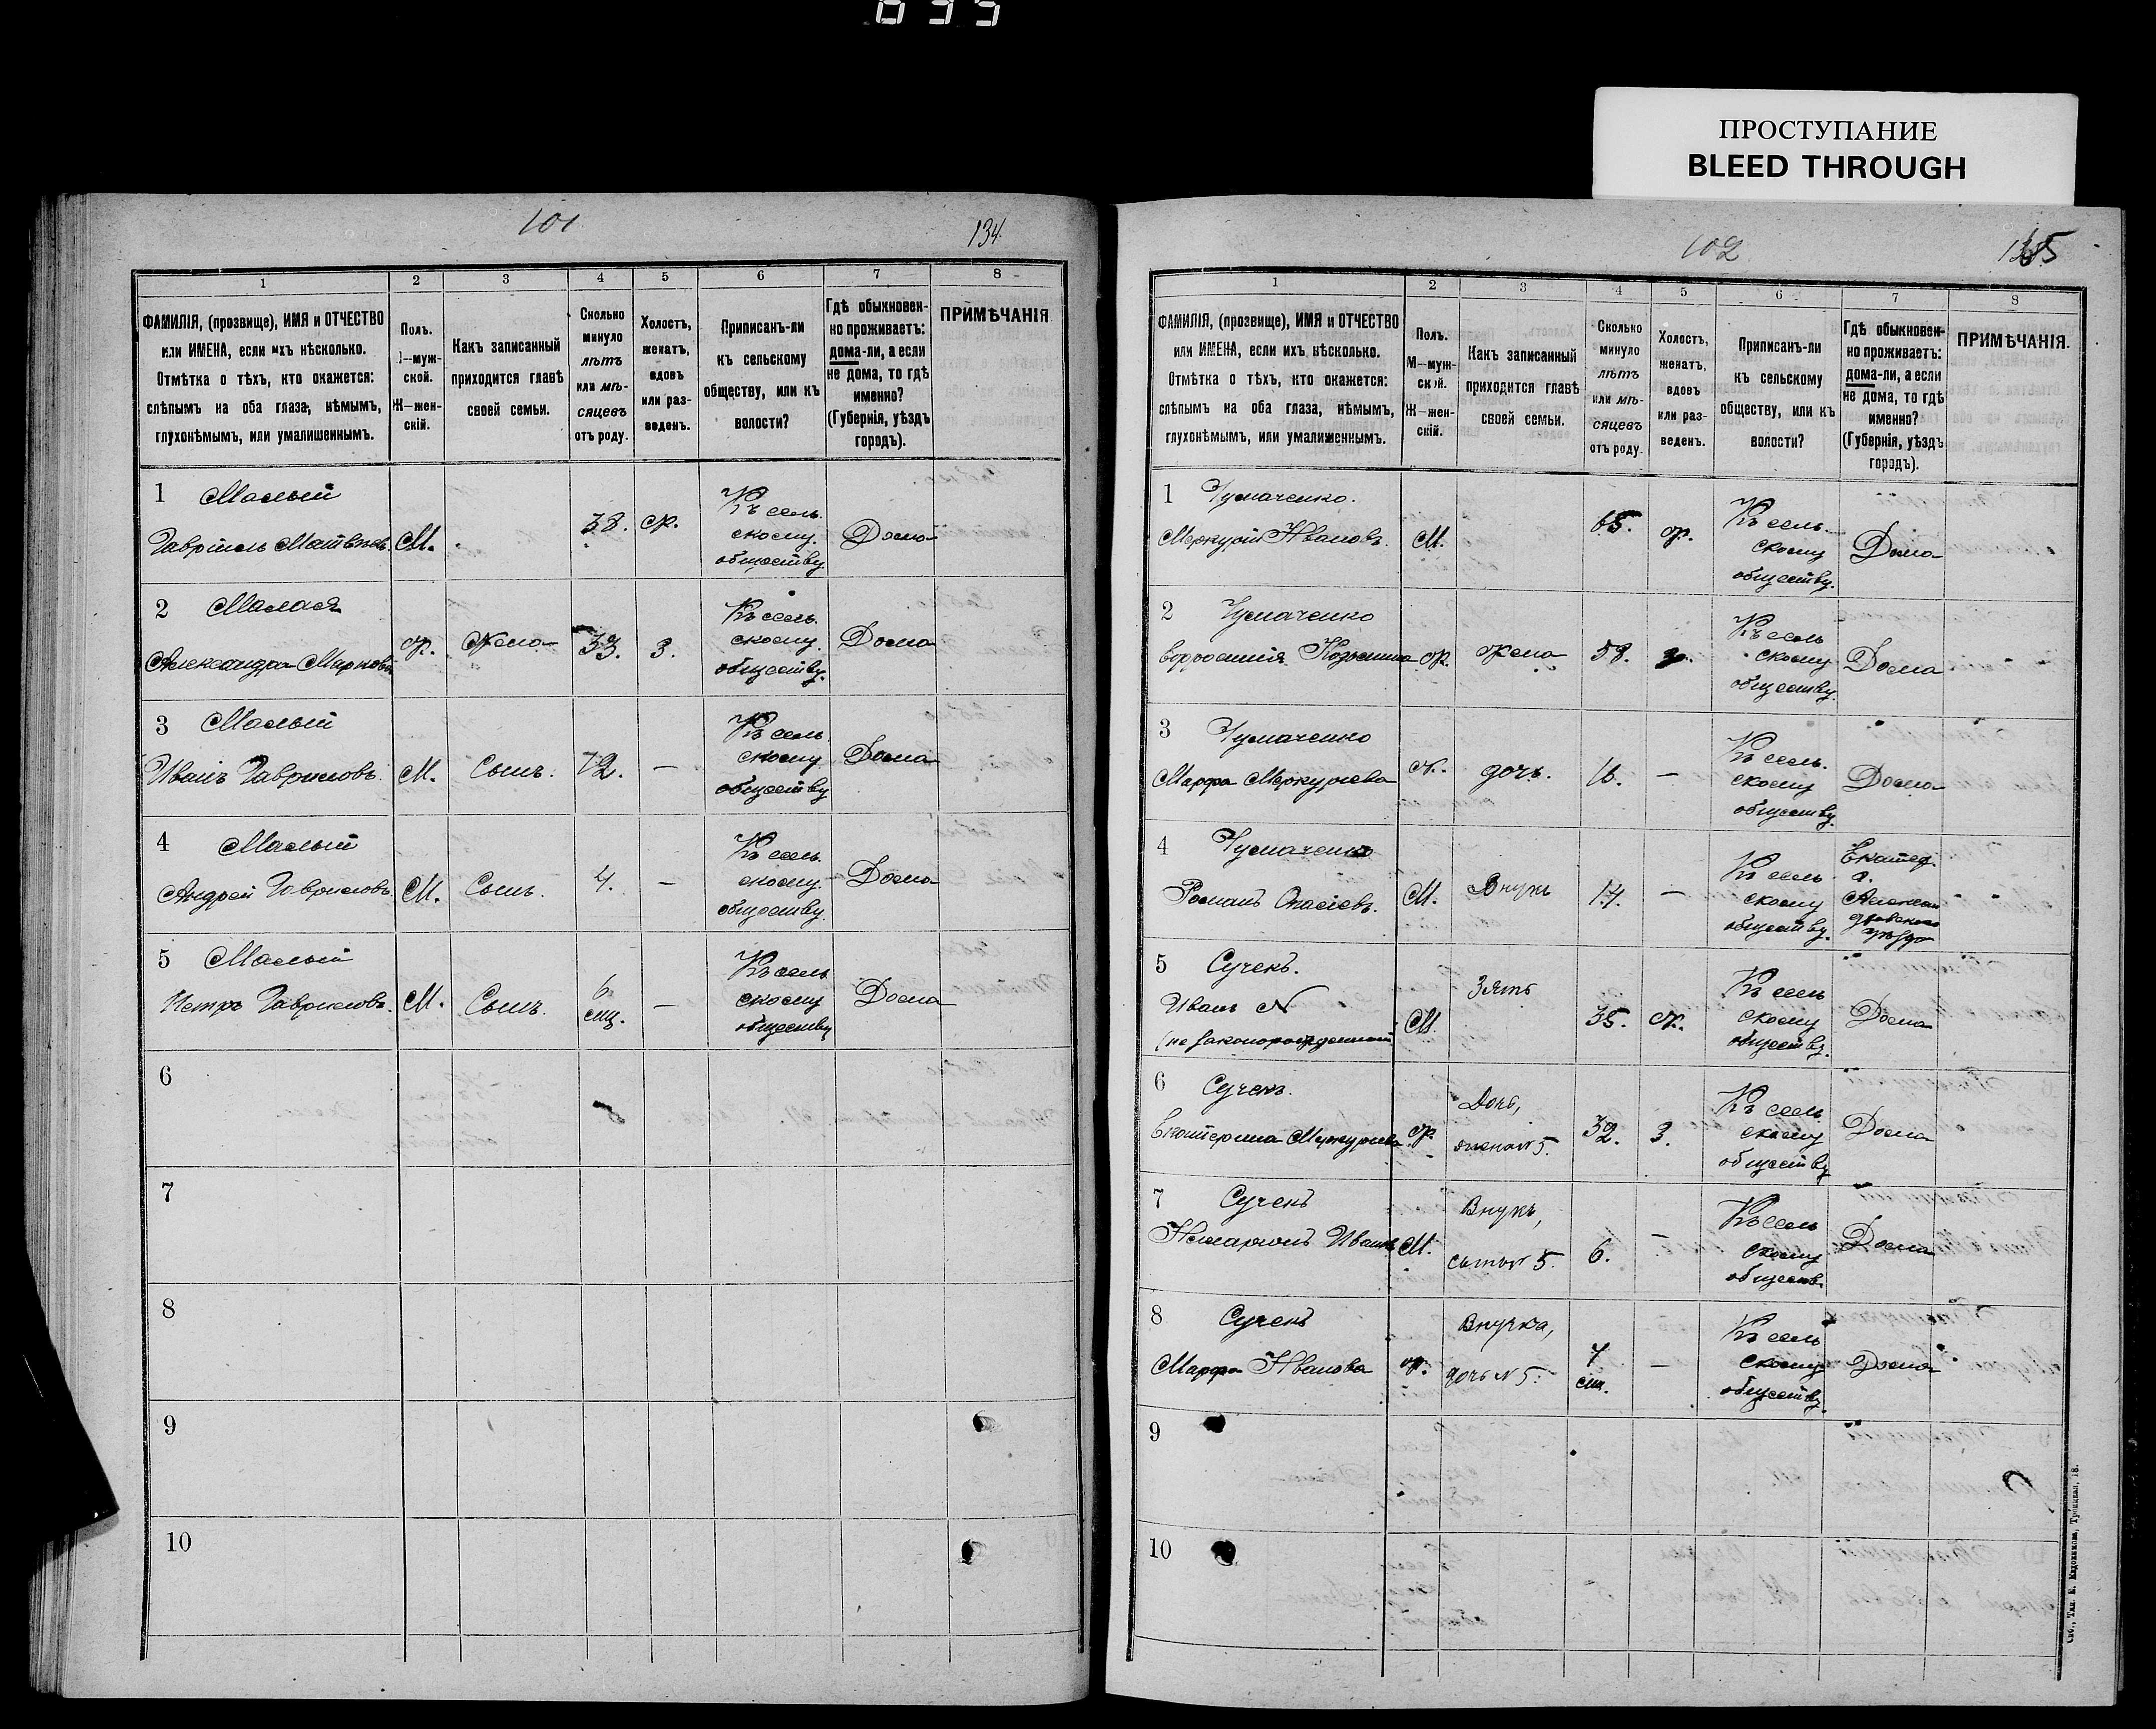 ПРОСТУПАНИЕ
BLEED THROUGH
101
134.
1 2 3 4 5 6 7 8
ФАМИЛІЯ, (прозвище), ИМЯ и ОТЧЕСТВО
или ИМЕНА, если ихъ нѣсколько.
Отмѣтка о тѣхъ, кто окажется:
слѣпымъ на оба глаза, нѣмымъ,
глухонѣмымъ, или умалишеннымъ.
Полъ.
М—муж-
ской.
Ж—жен-
скій.
Какъ записанный
приходится главѣ
своей семьи.
Сколько
минуло
лѣтъ
или мѣ-
сяцевъ
отъ роду.
Холостъ,
женатъ,
вдовъ
или раз-
веденъ.
Приписанъ-ли
къ сельскому
обществу, или къ
волости?
Гдѣ обыкновен-
но проживаетъ:
дома-ли, а если
не дома, то гдѣ
именно?
(Губернія, уѣздъ
городъ).
ПРИМѢЧАНІЯ
1 Малый
Гавріилъ Матвѣевъ М. 38. ж. Къ сель-
скому
обществу. Дома
2 Малая
Александра Маркова ж. Жена 33. з. Къ сель-
скому
обществу. Дома
3 Малый
Иванъ Гавриловъ М. Сынъ. 12. — Къ сель-
скому
обществу Дома
4 Малый
Андрей Гавриловъ М. Сынъ. 4. — Къ сель-
скому
обществу. Дома
5 Малый
Петръ Гавриловъ. М. Сынъ. 6
мц. — Къ сель
скому
обществу Дома
6
7
8
9
10
102
135
1 2 3 4 5 6 7 8
ФАМИЛІЯ, (прозвище), ИМЯ и ОТЧЕСТВО
или ИМЕНА, если ихъ нѣсколько.
Отмѣтка о тѣхъ, кто окажется:
слѣпымъ на оба глаза, нѣмымъ,
глухонѣмымъ, или умалишеннымъ.
Полъ.
М—муж-
ской.
Ж—жен-
скій.
Какъ записанный
приходится главѣ
своей семьи.
Сколько
минуло
лѣтъ
или мѣ-
сяцевъ
отъ роду.
Холостъ,
женатъ,
вдовъ
или раз-
веденъ.
Приписанъ-ли
къ сельскому
обществу, или къ
волости?
Гдѣ обыкновен-
но проживаетъ:
дома-ли, а если
не дома, то гдѣ
именно?
(Губернія, уѣздъ
городъ).
ПРИМѢЧАНІЯ.
1 Чумаченко.
Меркурій Ивановъ. М. 65. ж. Къ сель-
скому
обществу. Дома
2 Чумаченко
Козьмина ж. жена 58. з. Къ сель
скому
обществу. Дома
3 Чумаченко
Марфа Меркурьева ж. дочь. 16. — Къ сель-
скому
обществу. Дома
4 Чумаченко
Романъ М. Внукъ 14. — Къ сель-
скому
обществу. Екатер.
г.
Алексан
дровскаго
уѣзда
5 Сученъ.
Иванъ N
(незаконорожденный М. Зять 35. ж. Къ сель
скому
обществу. Дома
6 Сученъ.
Екатерина Меркурьева ж. Дочь,
жена N 5. 32. З. Къ сель
скому
обществу Дома
7 Сученъ
Иванъ М. Внукъ,
сынъ N 5. 6. — Къ сель
скому
обществ. Дома
8 Сученъ
Марфа Иванова ж. Внучка,
дочь N 5. 7
мц. — Къ сель
скому
обществу. Дома
9
10
Спб., Тип. Е. Евдокимова, Троицкая, 18.